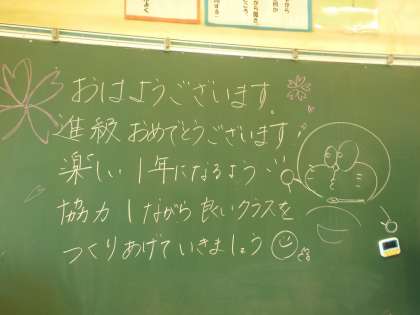 おはようございます。
進級おめでとうございます!
楽しい1年になるよう
協力しながら良いクラスを
つくりあげていきましょう